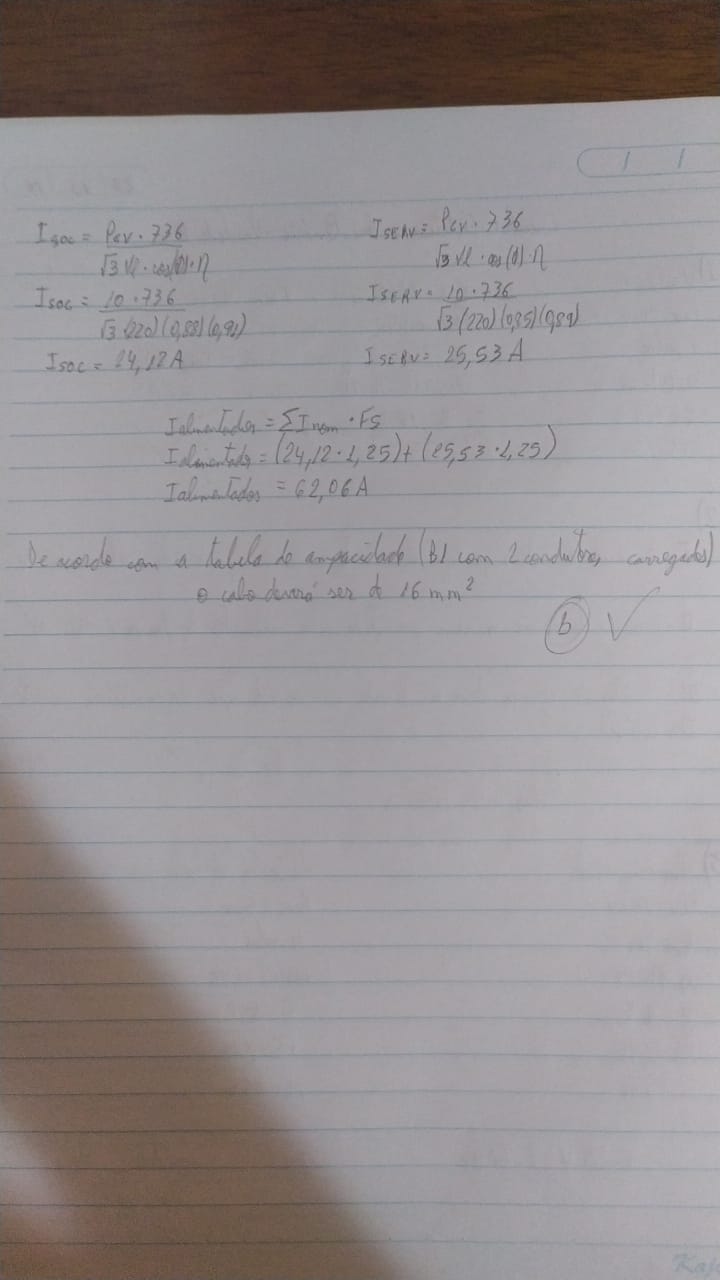 I soc = Pcv . 736 / √3 Vl . cos(θ) . η
I soc = 10 . 736 / √3 (220) (0,88) (0,91)
I soc = 24,12 A
I SERV = Pcv . 736 / √3 Vl . cos(θ) . η
I SERV = 10 . 736 / √3 (220) (0,85) (0,89)
I SERV = 25,53 A
I alimentador = Σ I nom . FS
I alimentador = (24,12 . 1,25) + (25,53 . 1,25)
I alimentador = 62,06 A
De acordo com a tabela de ampacidade (B1 com 2 condutores carregados)
o cabo deverá ser de 16 mm²
b ✓
Kaj